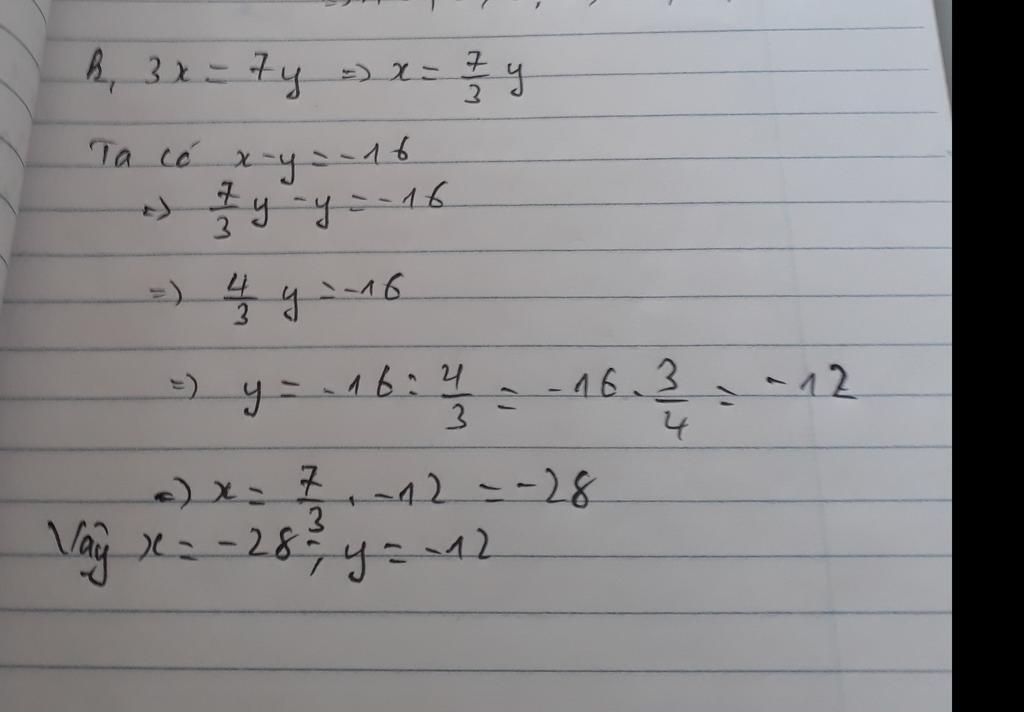 B, 3x = 7y => x = 7/3 y
Ta có x - y = -16
=> 7/3 y - y = -16
=> 4/3 y = -16
=> y = -16 : 4/3 = -16 . 3/4 = -12
=> x = 7/3 . -12 = -28
Vậy x = -28 ; y = -12